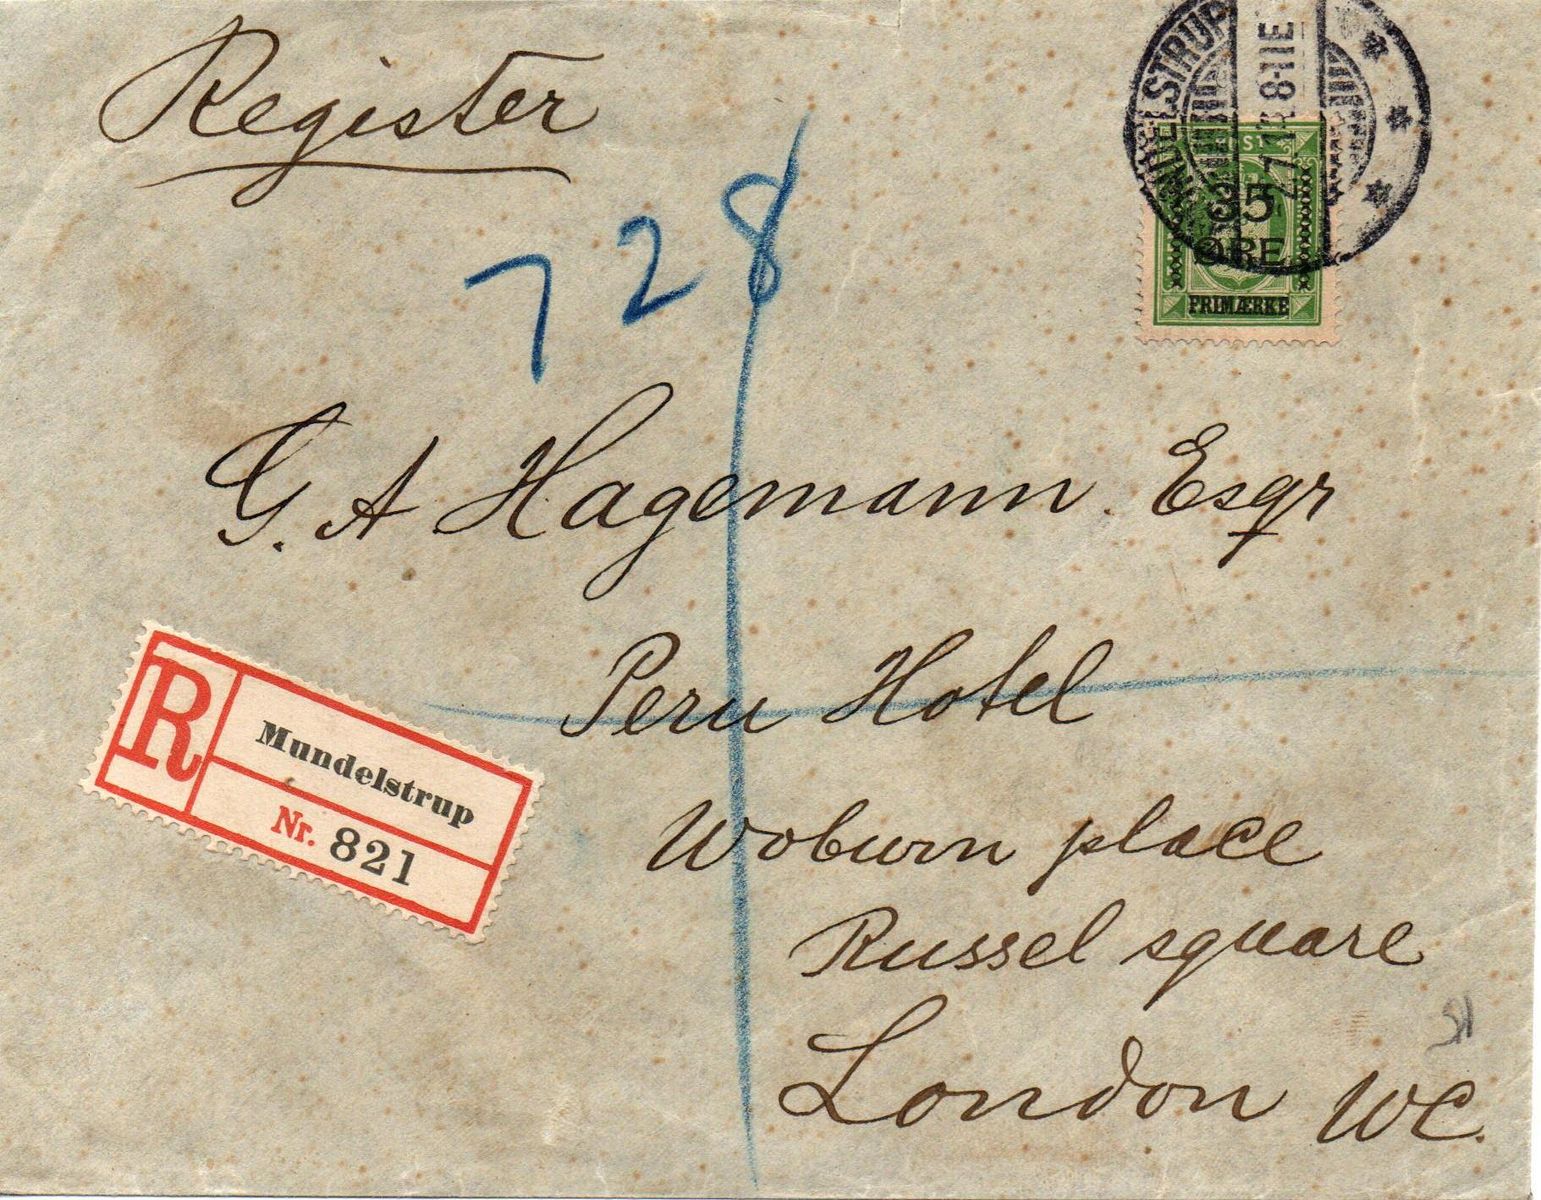 Register
MUNDELSTRUP
8-11E
35
ØRE
FRIMÆRKE
728
G. A Hagemann. Esqr
Peru Hotel
Woburn place
Russel square
London WC.
R
Mundelstrup
Nr. 821